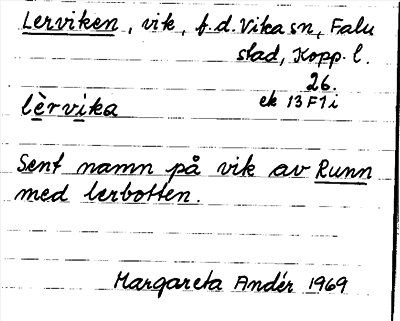 Lerviken, vik, f.d. Vika sn, Falu
stad, Kopp. l.
26.
lèrvika ek 13F1i
Sent namn på vik av Runn
med lerbotten.
Margareta Andér 1969